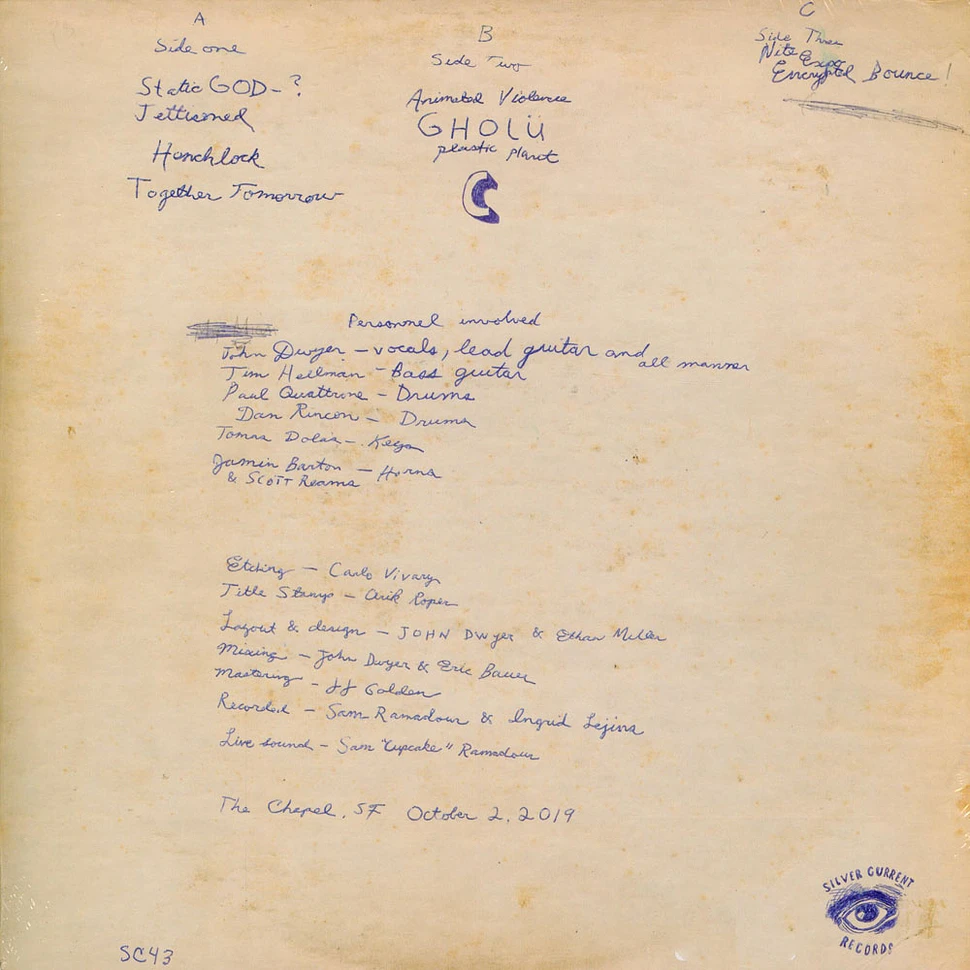 A
Side one
Static GOD - ?
Jettisoned
Henchlock
Together Tomorrow
B
Side Two
Animated Violence
GHOLÜ
plastic plant
C
C
Side Three
Nite Expo
Encrypted Bounce!
Personnel involved
John Dwyer - vocals, lead guitar and all manner
Tim Hellman - Bass guitar
Paul Quattrone - Drums
Dan Rincon - Drums
Tomas Dolas - Keys
Jamin Barton - Horns
& SCOTT Reams
Etching - Carlo Vivary
Title Stamp - Arik Roper
Layout & design - JOHN DWyer & Ethan Miller
Mixing - John Dwyer & Eric Bauer
Mastering - JJ Golden
Recorded - Sam Ramadour & Ingrid Lejins
Live sound - Sam "Cupcake" Ramadour
The Chapel, SF October 2, 2019
SILVER CURRENT
RECORDS
SC43